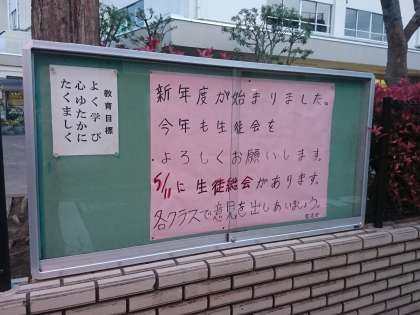 教育目標
よく学び
心ゆたかに
たくましく
新年度が始まりました。
今年も生徒会を
よろしくお願いします。
5/11に生徒総会があります。
各クラスで意見を出しあいましょう。